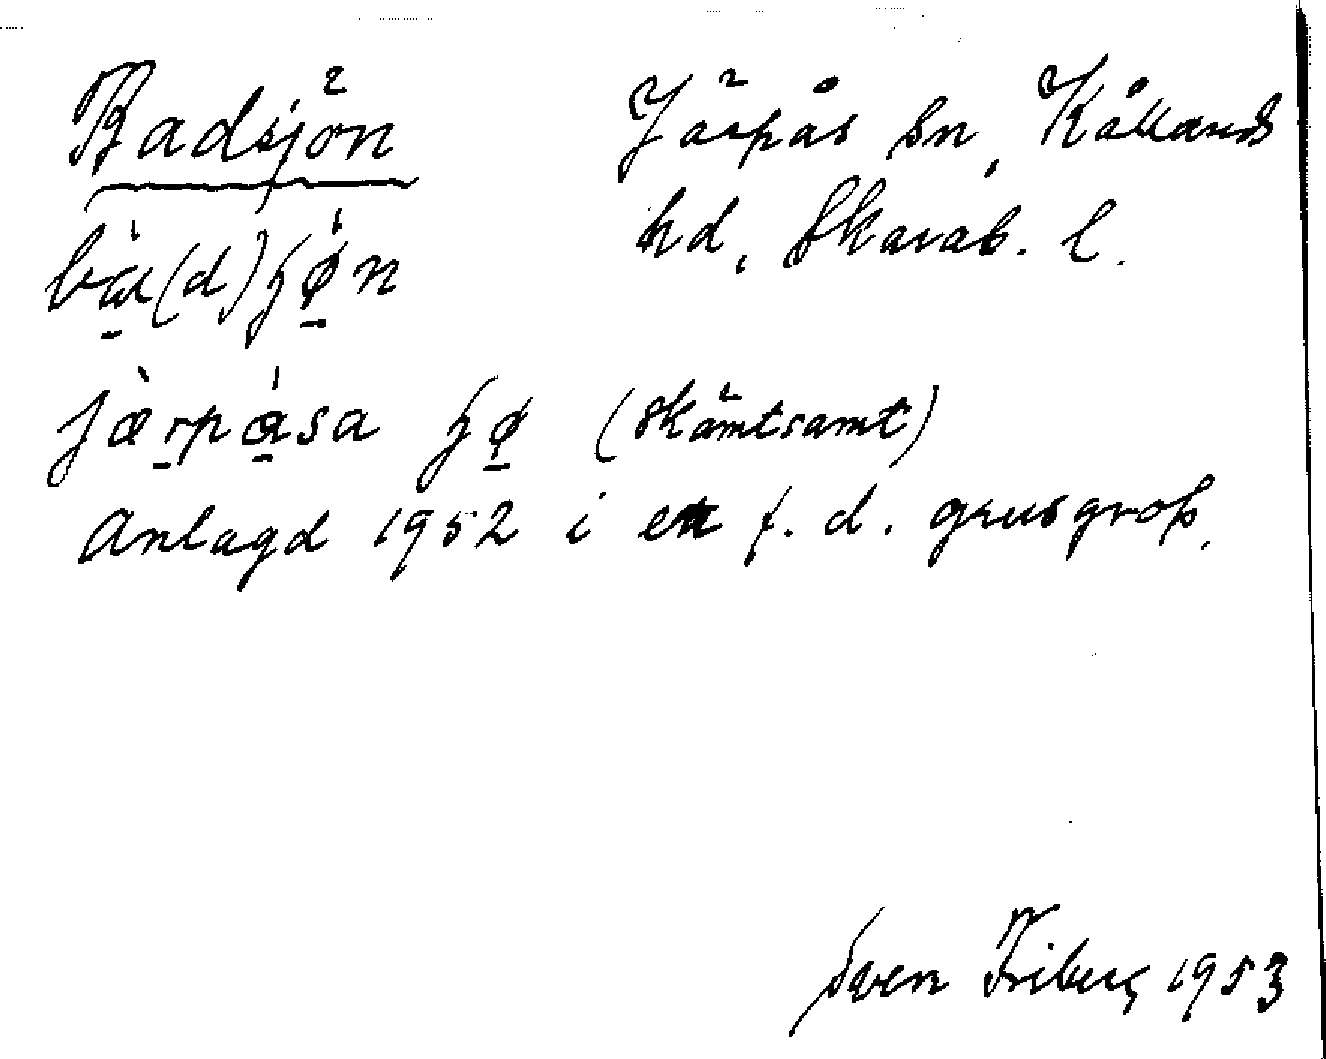 Badsjön
Järpås sn, Kållands
hd, Skarab. l.
bà(d)ʂǿn
jæ̀rpåsa ʂø (skämtsamt)
Anlagd 1952 i en f. d. grusgrop.
Sven Friberg 1953